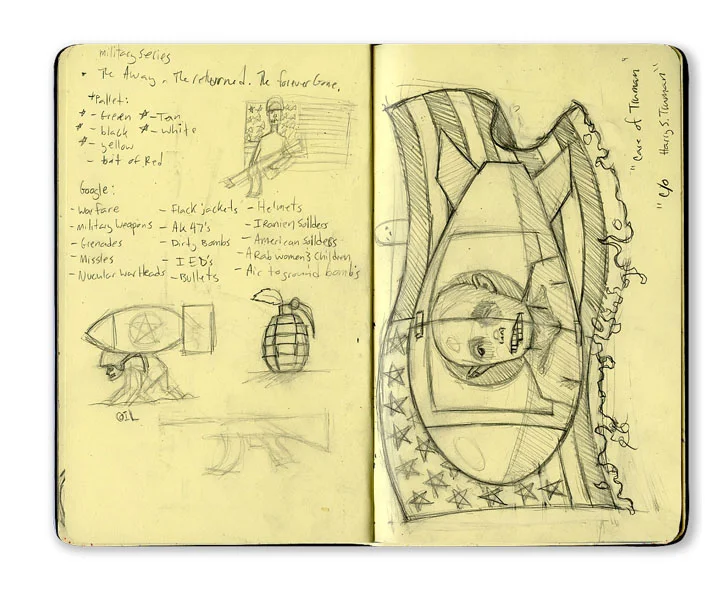 Military Series
• The Away. The returned. The forever Gone.
*Pallet:
# - Green # - Tan
# - black # - White
# - yellow
- bit of Red
Google:
- Warfare
- Military Weapons
- Grenades
- Missles
- Nucular War Heads
- Flack jackets
- AK 47's
- Dirty Bombs
- IED's
- Bullets
- Helmets
- Iranien Solders
- American Sollders
- Arab women's Children
- Air to ground bomb's
OIL
"Care of Truman"
"c/o Harry S. Truman"